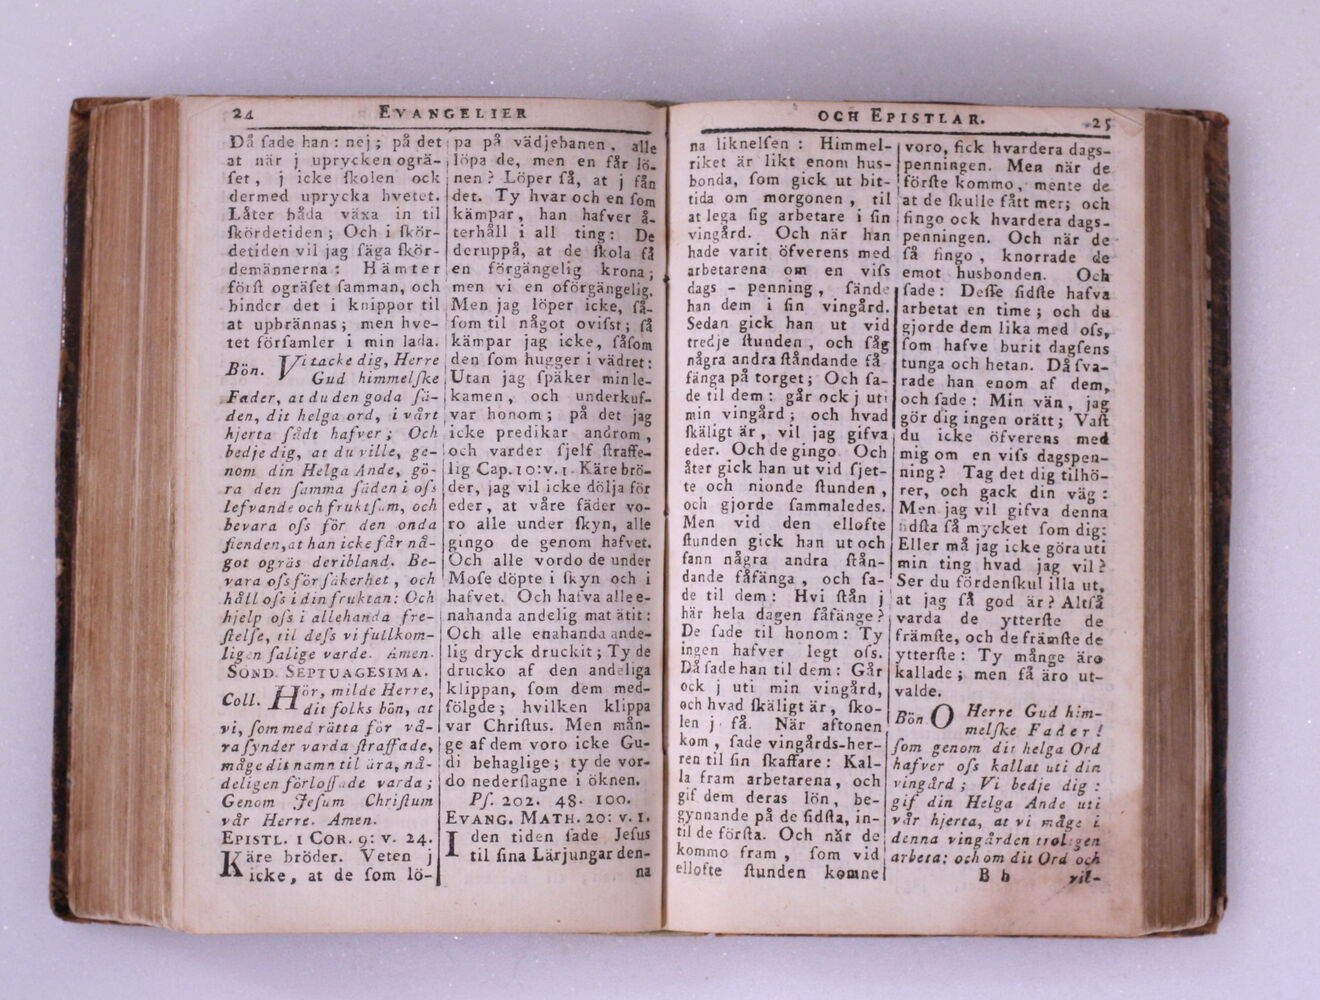 24 EVANGELIER
Då ſade han: nej; på det
at när j uprycken ogrä-
ſet, j icke ſkolen ock
dermed uprycka hvetet.
Låter båda växa in til
ſkördetiden; Och i ſkör-
detiden vil jag ſäga ſkör-
demännerna: Hämter
förſt ogräſet ſamman, och
binder det i knippor til
at upbrännas; men hve-
tet förſamler i min lada.
Bön. Vi tacke dig, Herre
Gud himmelſke
Fader, at du den goda ſä-
den, dit helga ord, i vårt
hjerta ſådt hafver; Och
bedje dig, at du ville, ge-
nom din Helga Ande, gö-
ra den ſamma ſäden i oſs
lefvande och fruktſam, och
bevara oſs för den onda
fienden, at han icke får nå-
got ogräs deribland. Be-
vara oſs för ſäkerhet, och
håll oſs i din fruktan: Och
hjelp oſs i allehanda fre-
ſtelſe, til deſs vi fullkom-
ligen ſalige varde. Amen.
SOND. SEPTUAGESIMA.
Coll. Hör, milde Herre,
dit folks bön, at
vi, ſom med rätta för vå-
ra ſynder varda ſtraffade,
måge dit namn til ära, nå-
deligen förloſſade varda;
Genom Jeſum Chriſtum
vår Herre. Amen.
EPISTL. 1 COR. 9: v. 24.
Käre bröder. Veten j
icke, at de ſom lö-
pa på vädjebanen, alle
löpa de, men en får lö-
nen? Löper ſå, at j fån
det. Ty hvar och en ſom
kämpar, han hafver å-
terhåll i all ting: De
deruppå, at de ſkola få
en förgängelig krona;
men vi en oförgängelig.
Men jag löper icke, ſå-
ſom til något oviſst; ſå
kämpar jag icke, ſåſom
den ſom hugger i vädret:
Utan jag ſpäker min le-
kamen, och underkuf-
var honom; på det jag
icke predikar androm,
och varder ſjelf ſtraffe-
lig Cap. 10: v. 1. Käre brö-
der, jag vil icke dölja för
eder, at våre fäder vo-
ro alle under ſkyn, alle
gingo de genom hafvet.
Och alle vordo de under
Moſe döpte i ſkyn och i
hafvet. Och hafva alle e-
nahanda andelig mat ätit:
Och alle enahanda ande-
lig dryck druckit; Ty de
drucko af den andeliga
klippan, ſom dem med-
fölgde; hvilken klippa
var Chriſtus. Men mån-
ge af dem voro icke Gu-
di behaglige; ty de vor-
do nederſlagne i öknen.
Pſ. 202. 48. 100.
EVANG. MATH. 20: v. 1.
I den tiden ſade Jeſus
til ſina Lärjungar den-
na
OCH EPISTLAR. 25
na liknelſen: Himmel-
riket är likt enom hus-
bonda, ſom gick ut bit-
tida om morgonen, til
at lega ſig arbetare i ſin
vingård. Och när han
hade varit öfverens med
arbetarena om en viſs
dags-penning, ſände
han dem i ſin vingård.
Sedan gick han ut vid
tredje ſtunden, och ſåg
några andra ſtåndande få
fänga på torget; Och ſa-
de til dem: går ock j uti
min vingård; och hvad
ſkäligt är, vil jag gifva
eder. Och de gingo. Och
åter gick han ut vid ſjet-
te och nionde ſtunden,
och gjorde ſammaledes.
Men vid den ellofte
ſtunden gick han ut och
fann några andra ſtån-
dande fåfänga, och ſa-
de til dem: Hvi ſtån j
här hela dagen fåfänge?
De ſade til honom: Ty
ingen hafver legt oſs.
Då ſade han til dem: Går
ock j uti min vingård,
och hvad ſkäligt är, ſko-
len j få. När aftonen
kom, ſade vingårds-her-
ren til ſin ſkaffare: Kal-
la fram arbetarena, och
gif dem deras lön, be-
gynnande på de ſidſta, in-
til de förſta. Och når de
kommo fram, ſom vid
ellofte ſtunden komne
voro, fick hvardera dags-
penningen. Men när de
förſte kommo, mente de
at de ſkulle fått mer; och
fingo ock hvardera dags-
penningen. Och när de
få fingo, knorrade de
emot husbonden. Och
ſade: Deſſe ſidſte hafva
arbetat en time; och du
gjorde dem lika med oſs,
ſom hafve burit dagſens
tunga och hetan. Då ſva-
rade han enom af dem,
och ſade: Min vän, jag
gör dig ingen orätt; Vaſt
du icke öfverens med
mig om en viſs dagspen-
ning? Tag det dig tilhö-
rer, och gack din väg:
Men jag vil gifva denna
ſidſta få mycket ſom dig:
Eller må jag icke göra uti
min ting hvad jag vil?
Ser du fördenſkul illa ut,
at jag ſå god är? Altſå
varda de ytterſte de
främſte, och de främſte de
ytterſte: Ty månge äro
kallade; men få äro ut-
valde.
Bön O Herre Gud him-
melſke Fader!
ſom genom dit helga Ord
hafver oſs kallat uti din
vingård; Vi bedje dig:
gif din Helga Ande uti
vår hjerta, at vi måge i
denna vingården troligen
arbeta: och om dit Ord och
B b vil-